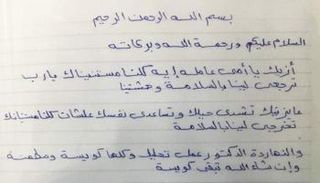 بسم الله الرحمن الرحيم
السلام عليكم ورحمة الله وبركاته
أزيك يا أمى عامله إيه كلنا مستنياك يارب
ترجعى لينا بالسلامة وحشتينا
عايزينك تشدى حيلك وتساعدى نفسك علشان كلنا مستنينك
تخرجى لينا بالسلامة
والنهاردة الدكتور عمل تحليل وكلها كويسة ومطمنة
وإن شاء الله تبقى كويسة